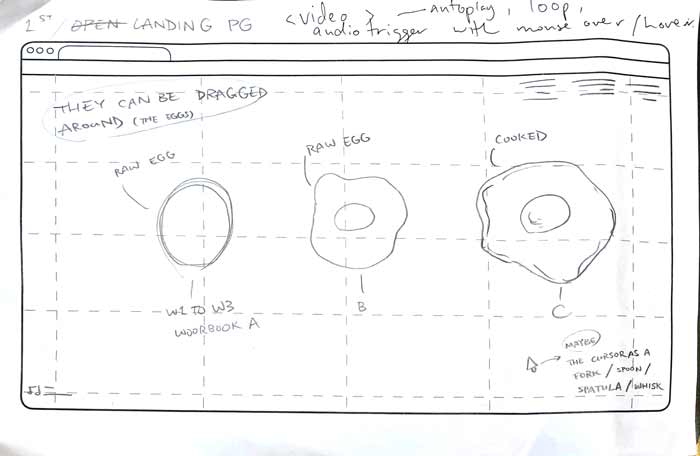 1ST OPEN LANDING PG
<video> — autoplay, loop,
audio trigger with mouse over/hover
THEY CAN BE DRAGGED
AROUND (THE EGGS)
RAW EGG
RAW EGG
COOKED
W1 TO W3
WOORBOOK A
B
C
MAYBE
THE CURSOR AS A
FORK / SPOON /
SPATULA / WHISK